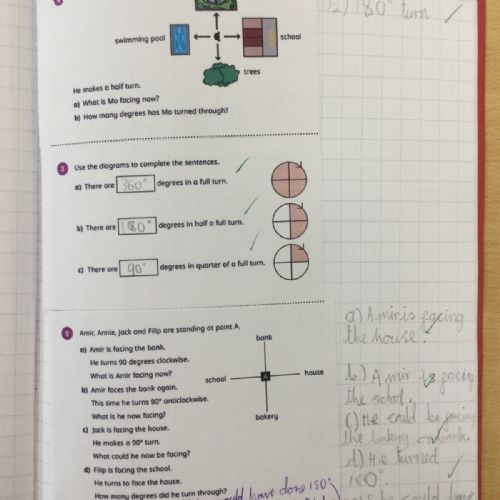 2) 180° turn
swimming pool
school
trees
He makes a half turn.
a) What is Mo facing now?
b) How many degrees has Mo turned through?
3 Use the diagrams to complete the sentences.
a) There are 360° degrees in a full turn.
b) There are 180° degrees in half a full turn.
c) There are 90° degrees in quarter of a full turn.
5 Amir, Annie, Jack and Filip are standing at point A.
a) Amir is facing the bank.
He turns 90 degrees clockwise.
What is Amir facing now?
b) Amir faces the bank again.
This time he turns 90° anticlockwise.
What is he now facing?
c) Jack is facing the house.
He makes a 90° turn.
What could he now be facing?
d) Filip is facing the school.
He turns to face the house.
How many degrees did he turn through?
bank
school
A
house
bakery
a) Amir is facing
the house.
b) Amir is facing
the school.
c) He could be facing
the bakery or bank.
d) He turned
180°.
could have done 180°